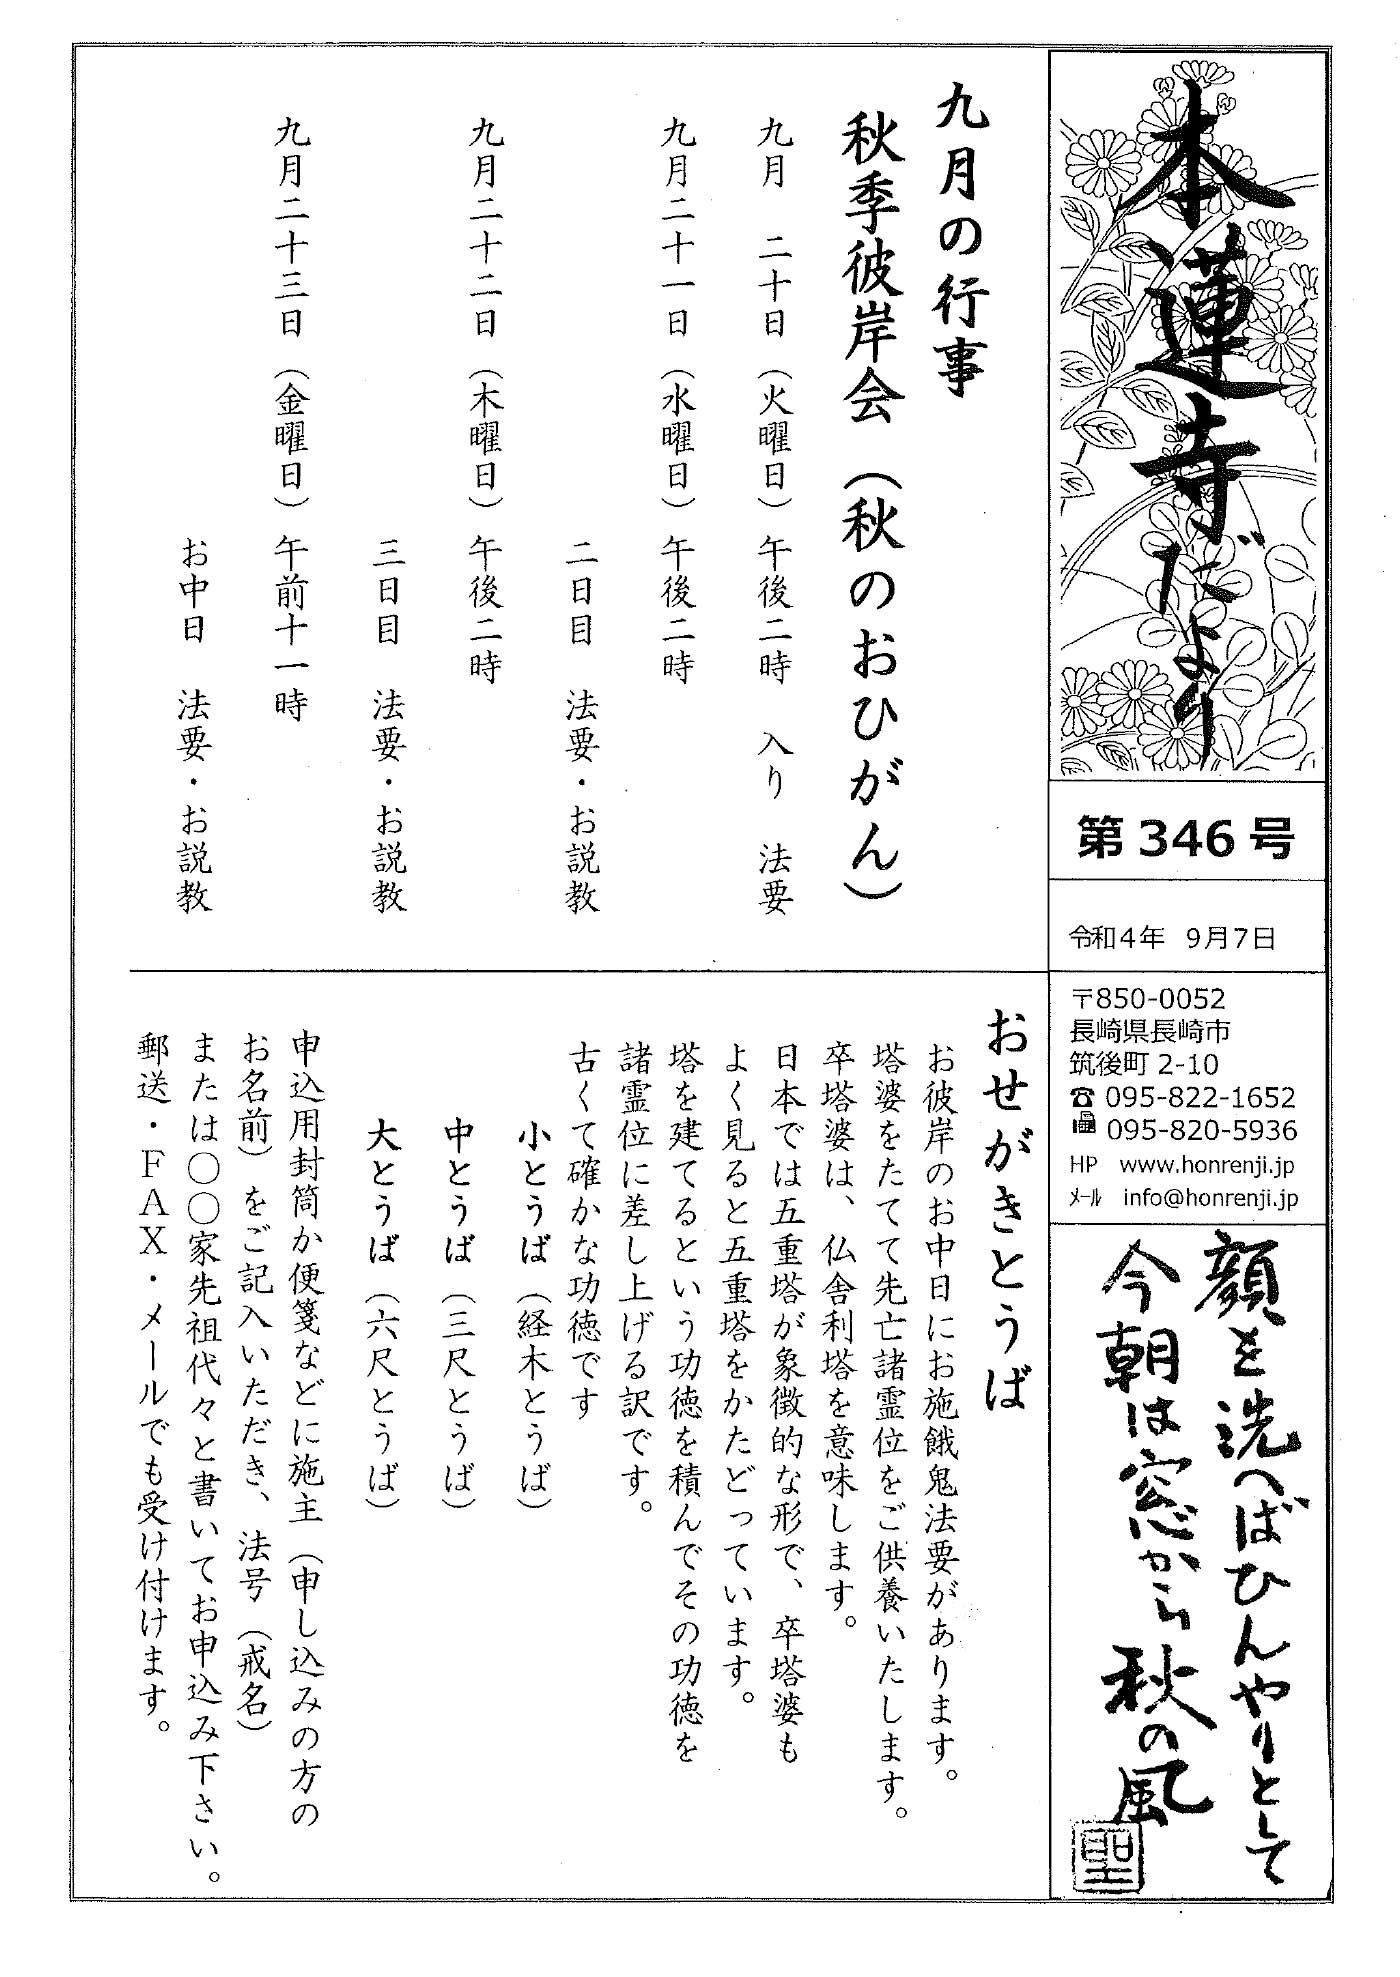 本蓮寺だより
第346号
令和4年 9月7日
〒850-0052
長崎県長崎市
筑後町 2-10
☎ 095-822-1652
095-820-5936
HP www.honrenji.jp
ﾒｰﾙ info@honrenji.jp
顔を洗へばひんやりとして
今朝は窓から秋の風
聖
九月の行事
秋季彼岸会（秋のおひがん）
九月 二十日（火曜日）午後二時 入り 法要
九月二十一日（水曜日）午後二時
二日目 法要・お説教
九月二十二日（木曜日）午後二時
三日目 法要・お説教
九月二十三日（金曜日）午前十一時
お中日 法要・お説教
おせがきとうば
お彼岸のお中日にお施餓鬼法要があります。
塔婆をたてて先亡諸霊位をご供養いたします。
卒塔婆は、仏舎利塔を意味します。
日本では五重塔が象徴的な形で、卒塔婆も
よく見ると五重塔をかたどっています。
塔を建てるという功徳を積んでその功徳を
諸霊位に差し上げる訳です。
古くて確かな功徳です
小とうば（経木とうば）
中とうば（三尺とうば）
大とうば（六尺とうば）
申込用封筒か便箋などに施主（申し込みの方の
お名前）をご記入いただき、法号（戒名）
または〇〇家先祖代々と書いてお申込み下さい。
郵送・ＦＡＸ・メールでも受け付けます。